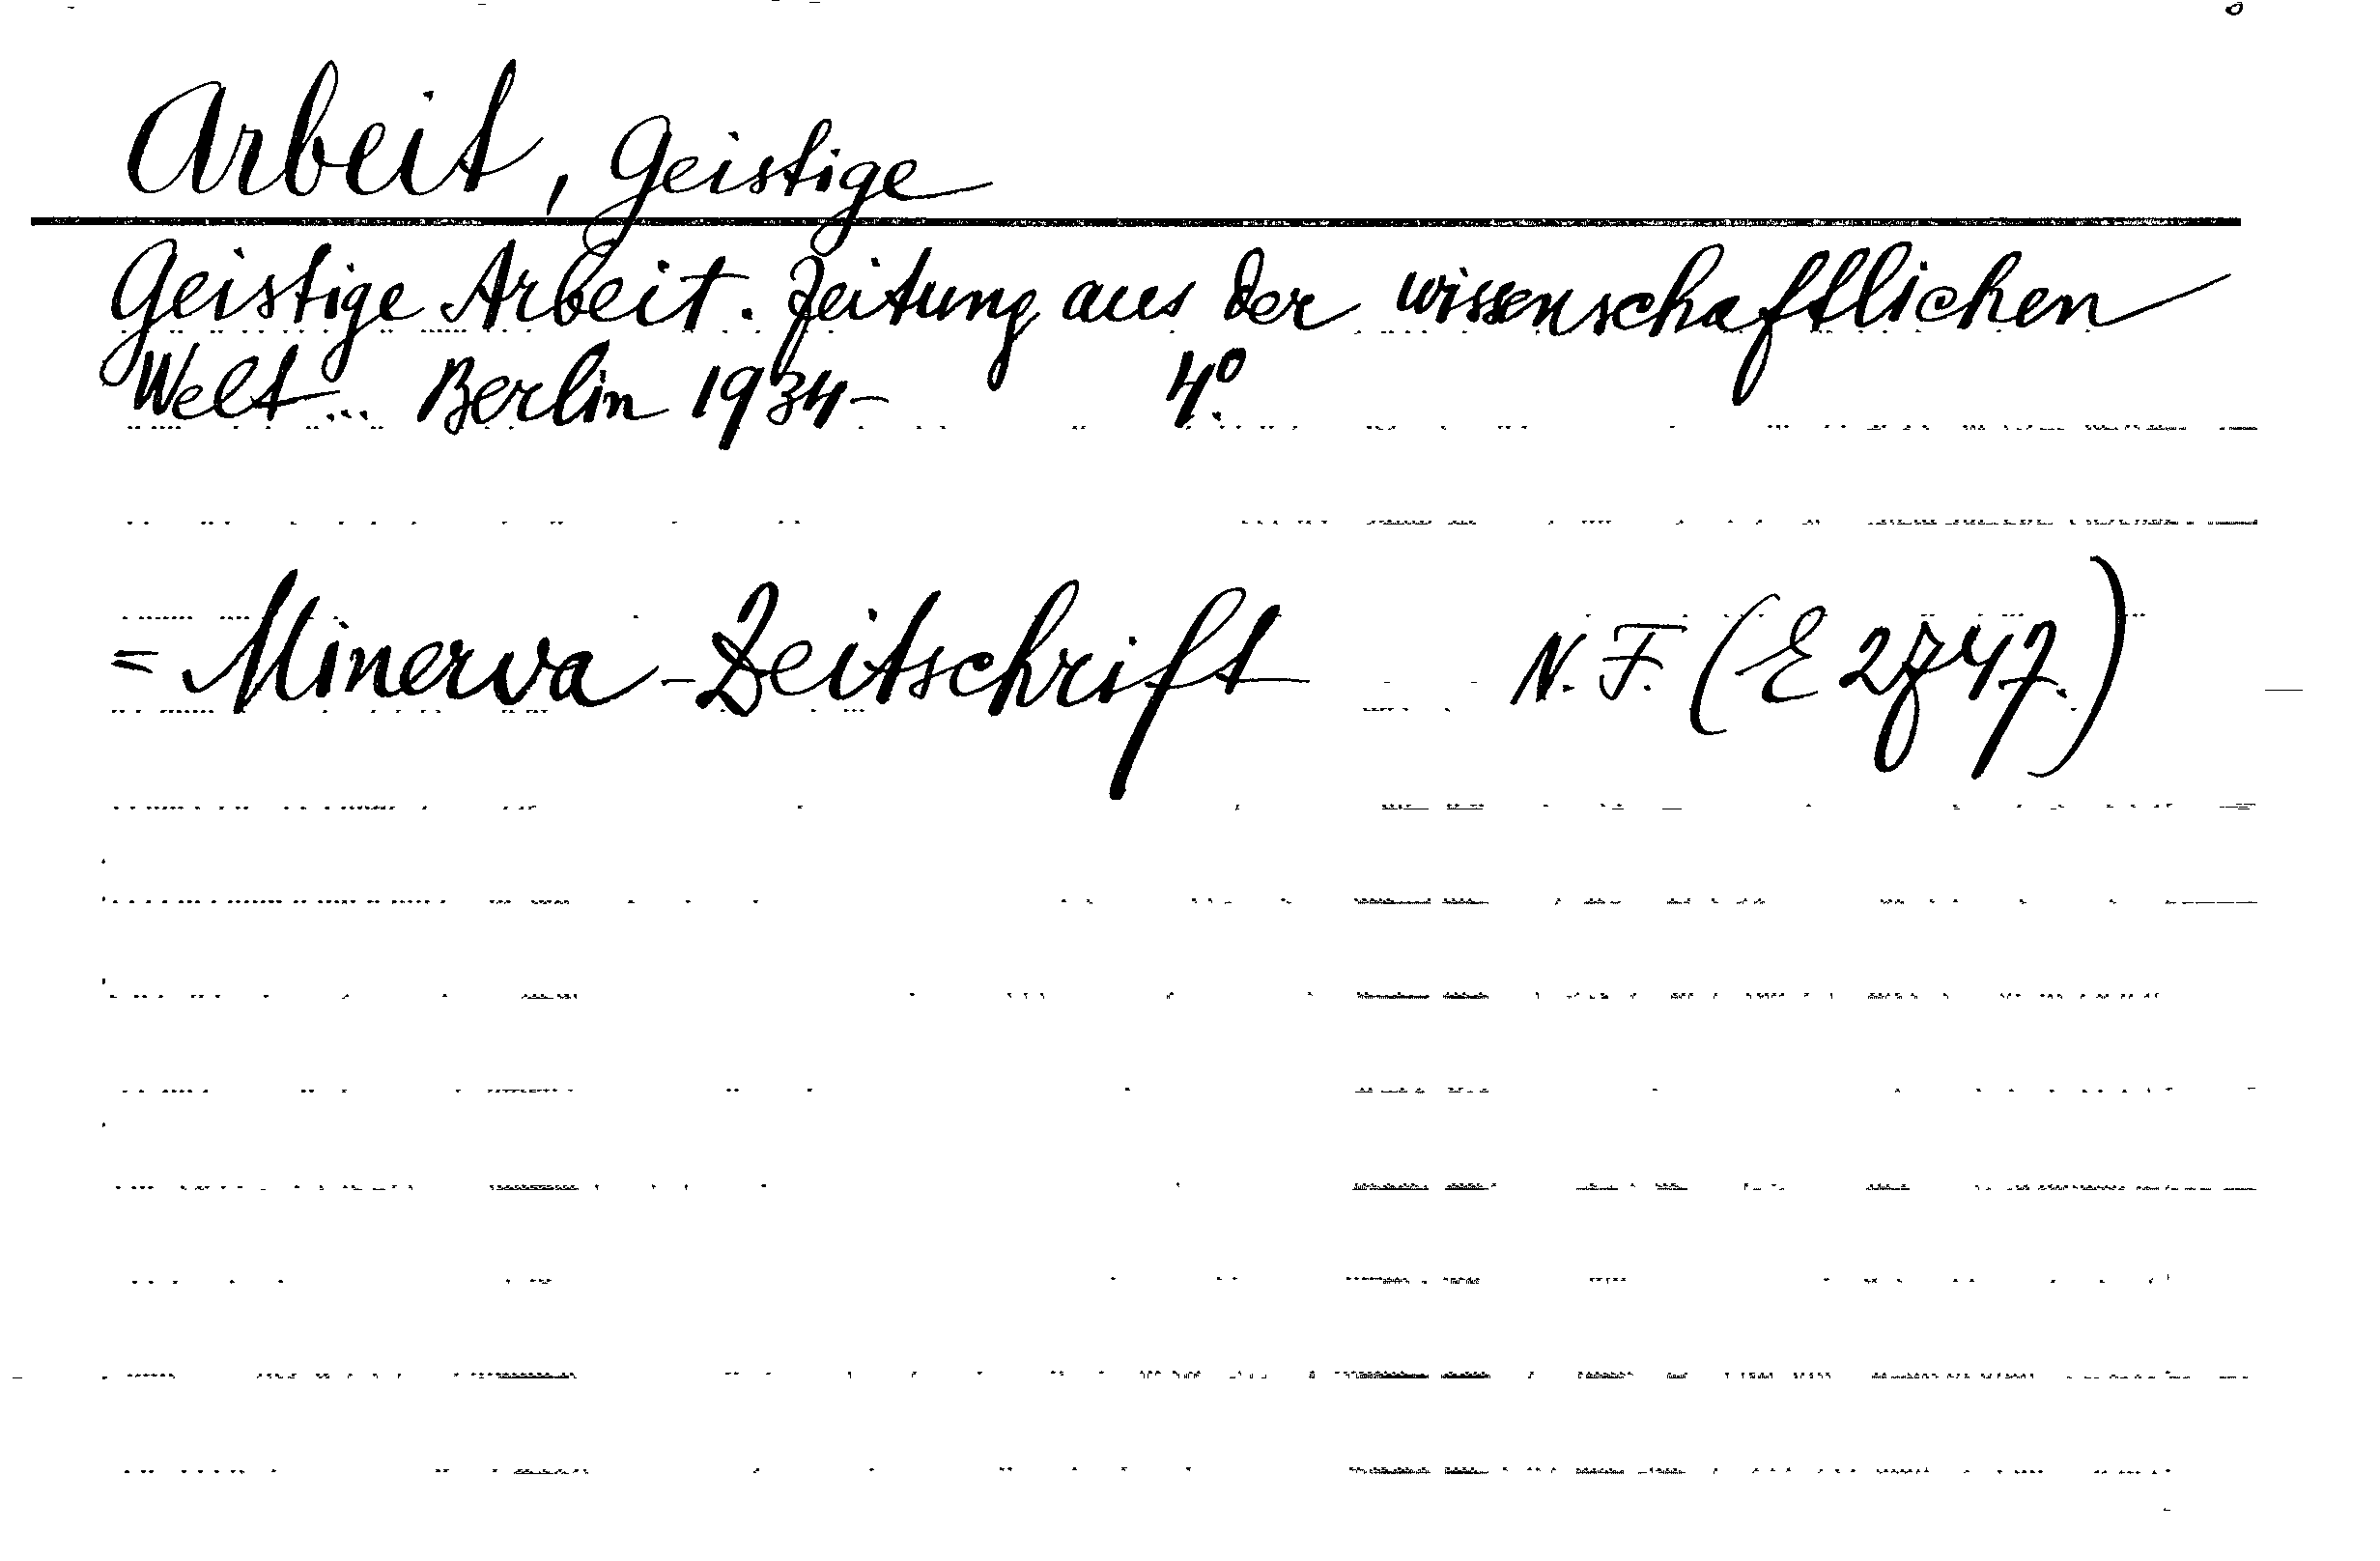 Arbeit, Geistige
Geistige Arbeit. Zeitung aus der wissenschaftlichen
Welt... Berlin 1934- 4º.
= Minerva-Zeitschrift N.F. (E 2847.)